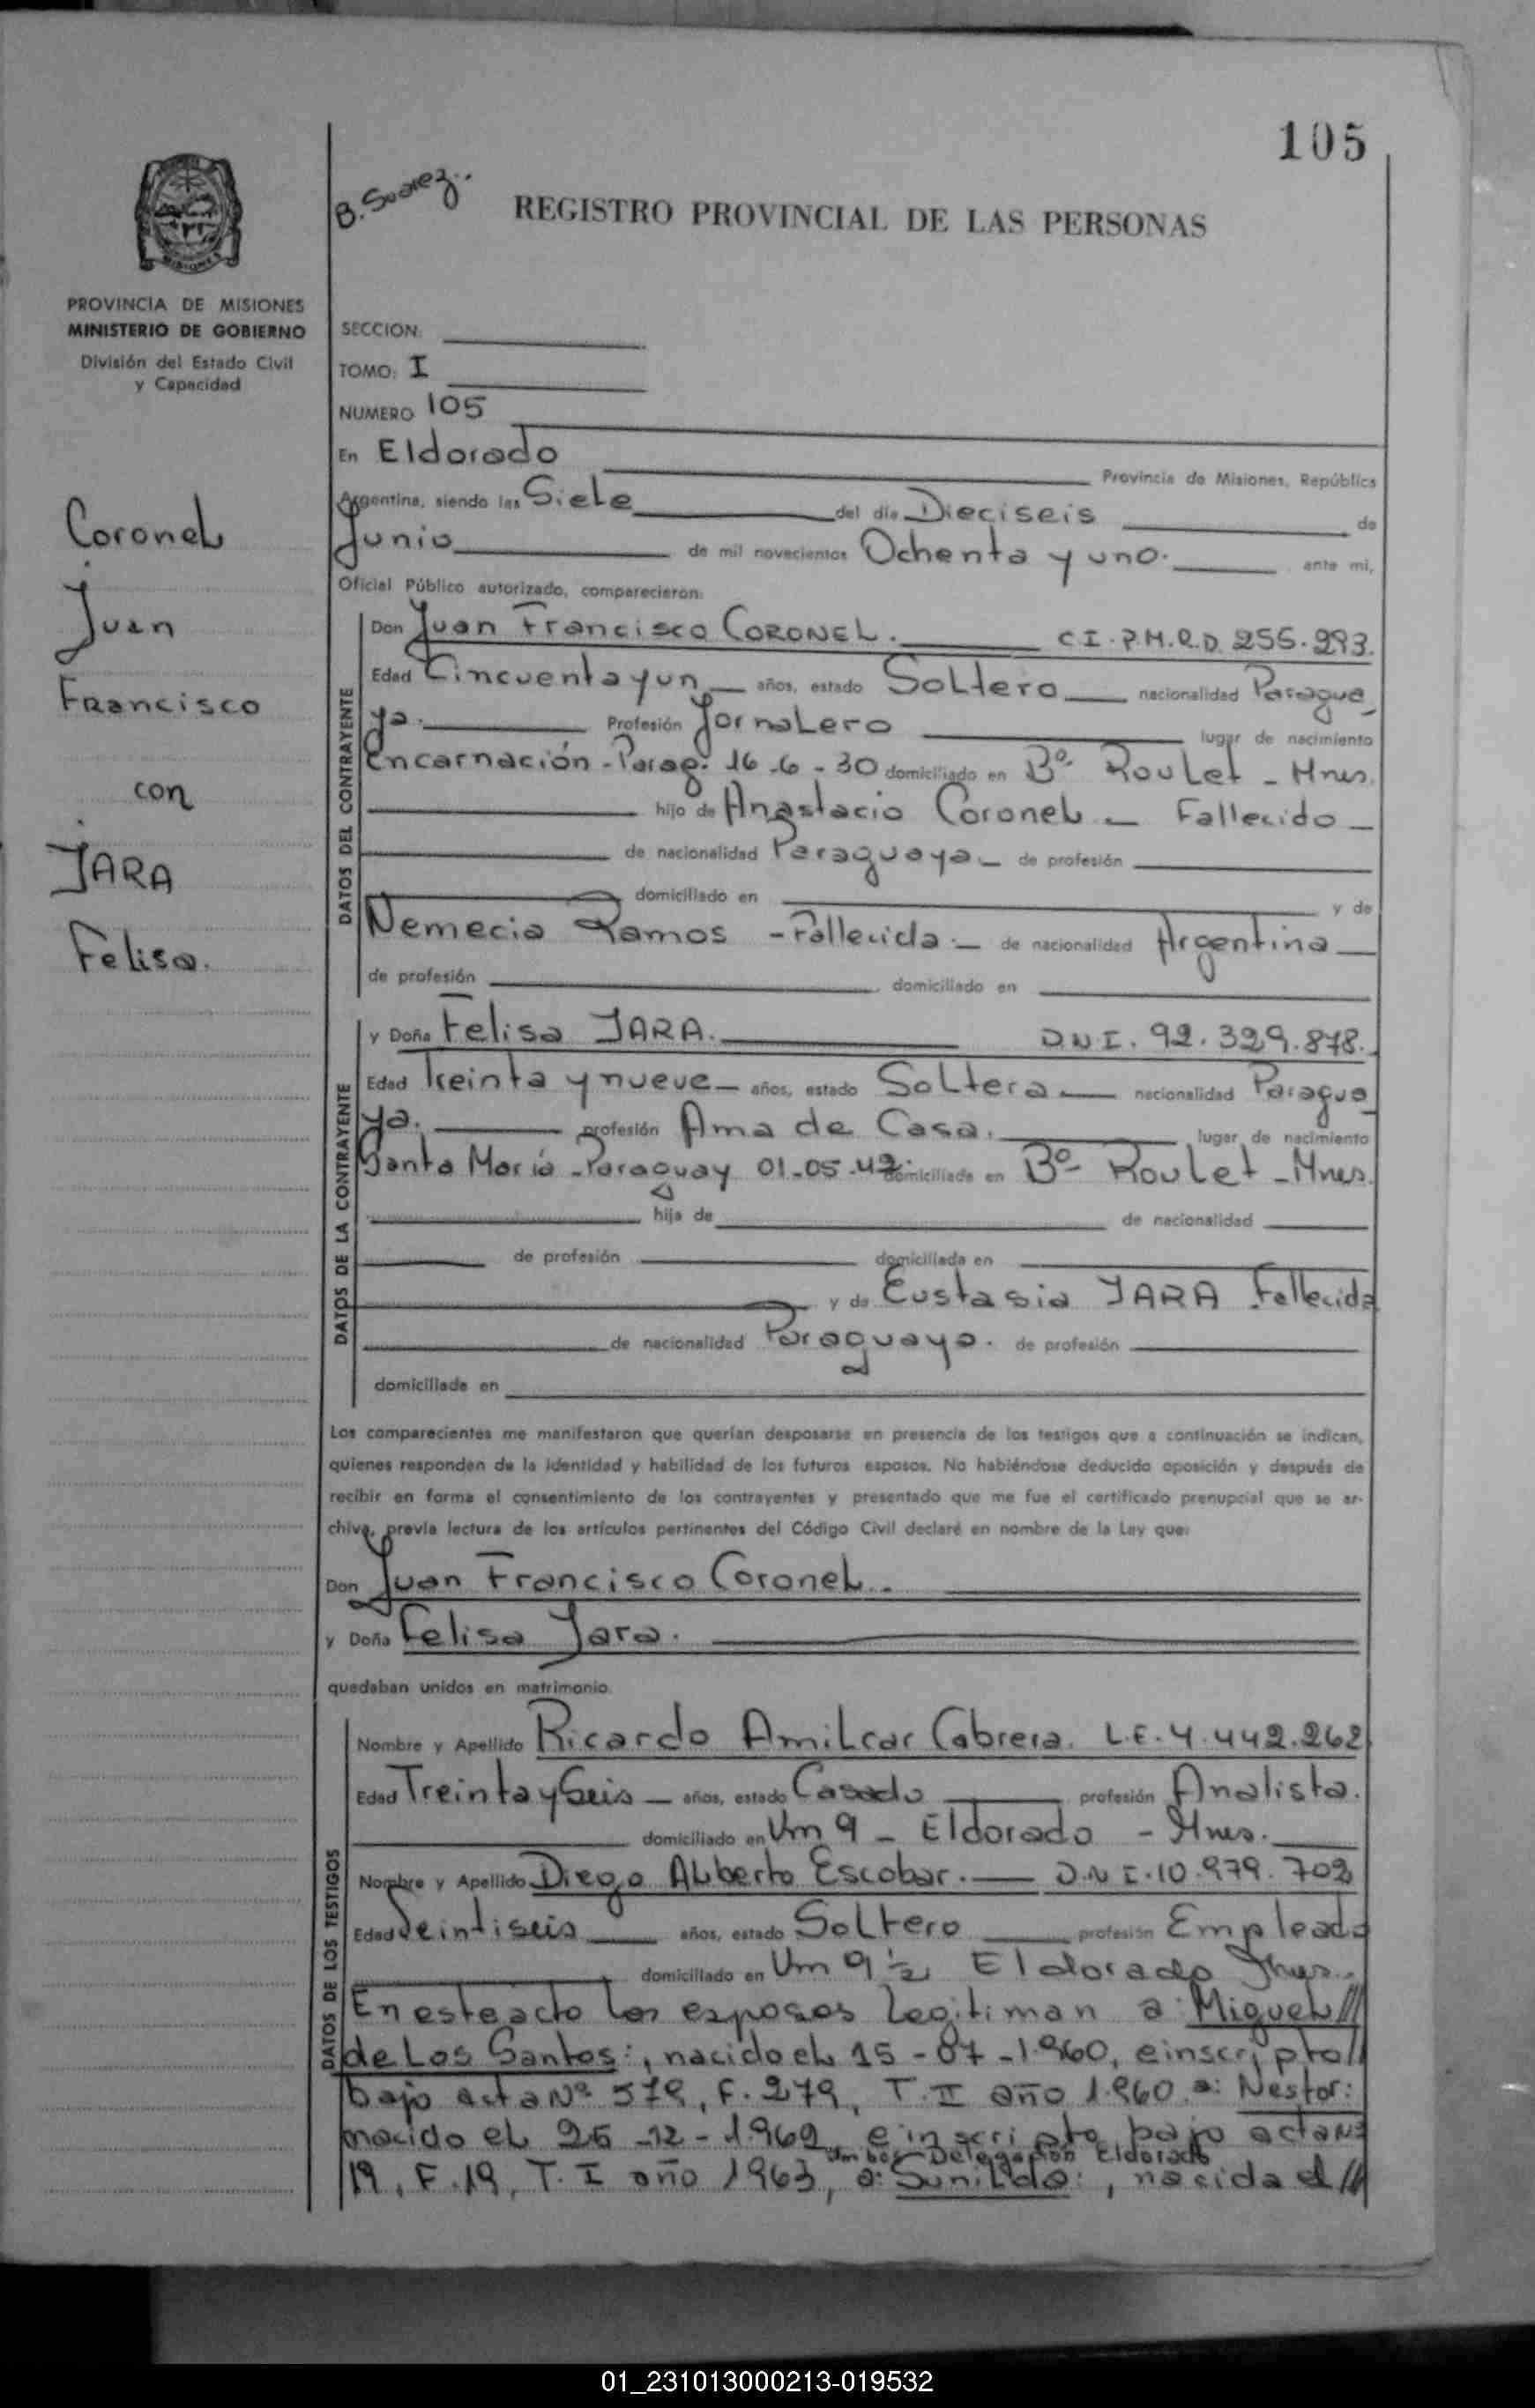 105
B. Suarez.
REGISTRO PROVINCIAL DE LAS PERSONAS
MISIONES
PROVINCIA DE MISIONES
MINISTERIO DE GOBIERNO
División del Estado Civil
y Capacidad
Coronel
Juan
Francisco
con
JARA
Felisa.
SECCION:
TOMO: I
NUMERO 105
En Eldorado Provincia de Misiones, República
Argentina, siendo las Siete del día Dieciseis de
Junio de mil novecientos Ochenta y uno. ante mi,
Oficial Público autorizado, comparecieron:
DATOS DEL CONTRAYENTE
Don Juan Francisco CORONEL. C.I.P.M.R.D. 256.293.
Edad Cincuenta y un años, estado Soltero nacionalidad Paragua
ya. Profesión Jornalero lugar de nacimiento
Encarnación - Parag. 16-6-30 domiciliado en Bº Roulet - Mnes.
hijo de Anastacio Coronel - Fallecido
de nacionalidad Paraguaya de profesión
domiciliado en y de
Nemecia Ramos - Fallecida. de nacionalidad Argentina
de profesión domiciliado en
DATOS DE LA CONTRAYENTE
y Doña Felisa JARA. D.N.I. 92.329.878.
Edad treinta y nueve años, estado Soltera nacionalidad Paragua
ya. profesión Ama de Casa. lugar de nacimiento
Santa María - Paraguay 01-05-42 domiciliada en Bº Roulet - Mnes.
hija de de nacionalidad
de profesión domiciliada en
y de Eustasia JARA Fallecida
de nacionalidad Paraguaya. de profesión
domiciliada en
Los comparecientes me manifestaron que querían desposarse en presencia de los testigos que a continuación se indican,
quienes responden de la identidad y habilidad de los futuros esposos. No habiéndose deducido oposición y después de
recibir en forma el consentimiento de los contrayentes y presentado que me fue el certificado prenupcial que se ar-
chiva, previa lectura de los artículos pertinentes del Código Civil declaré en nombre de la Ley que:
Don Juan Francisco Coronel.
y Doña Felisa Jara.
quedaban unidos en matrimonio.
DATOS DE LOS TESTIGOS
Nombre y Apellido Ricardo Amilcar Cabrera. L.E. 4.442.262
Edad Treinta y Seis años, estado Casado profesión Analista.
domiciliado en Km 9 - Eldorado - Mnes.
Nombre y Apellido Diego Alberto Escobar. D.N.I. 10.979.702
Edad Veintiseis años, estado Soltero profesión Empleado
domiciliado en Km 9 ½ Eldorado Mnes.
En este acto los esposos legitiman a: Miguel///
de Los Santos:, nacido el 15-07-1.960, e inscripto//
bajo acta Nº 579, F. 279, T. II año 1.960 a: Nestor:
nacido el 26-12-1.962, e inscripto bajo acta Nº
ambos Delegación Eldorado
19, F. 19, T. I año 1963, a: Sunilda:, nacida el///
01_231013000213-019532